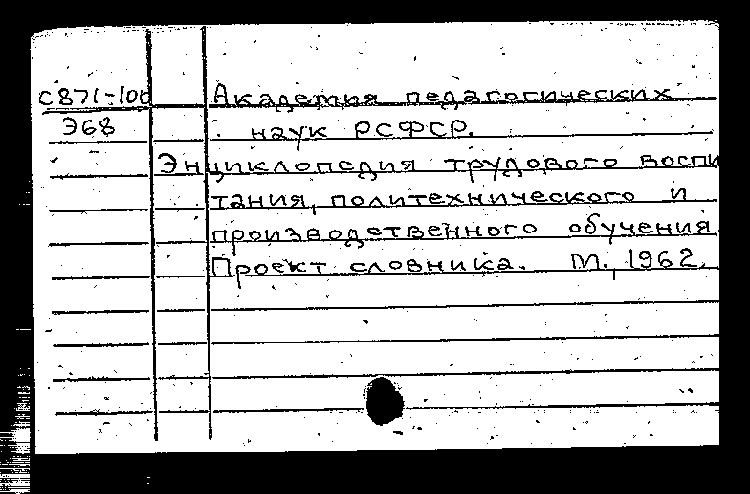 С871-100 Академия педагогических
Э68 наук РСФСР.
Энциклопедия трудового воспи
тания, политехнического и
производственного обучения
Проект словника. М., 1962.